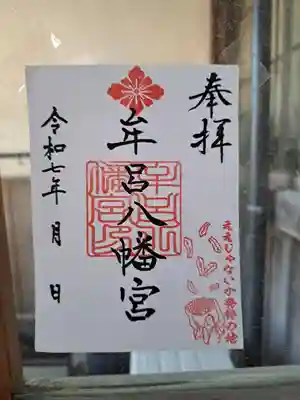 奉拝
牟呂八幡宮
令和七年 月 日
ええじゃないか発祥の地